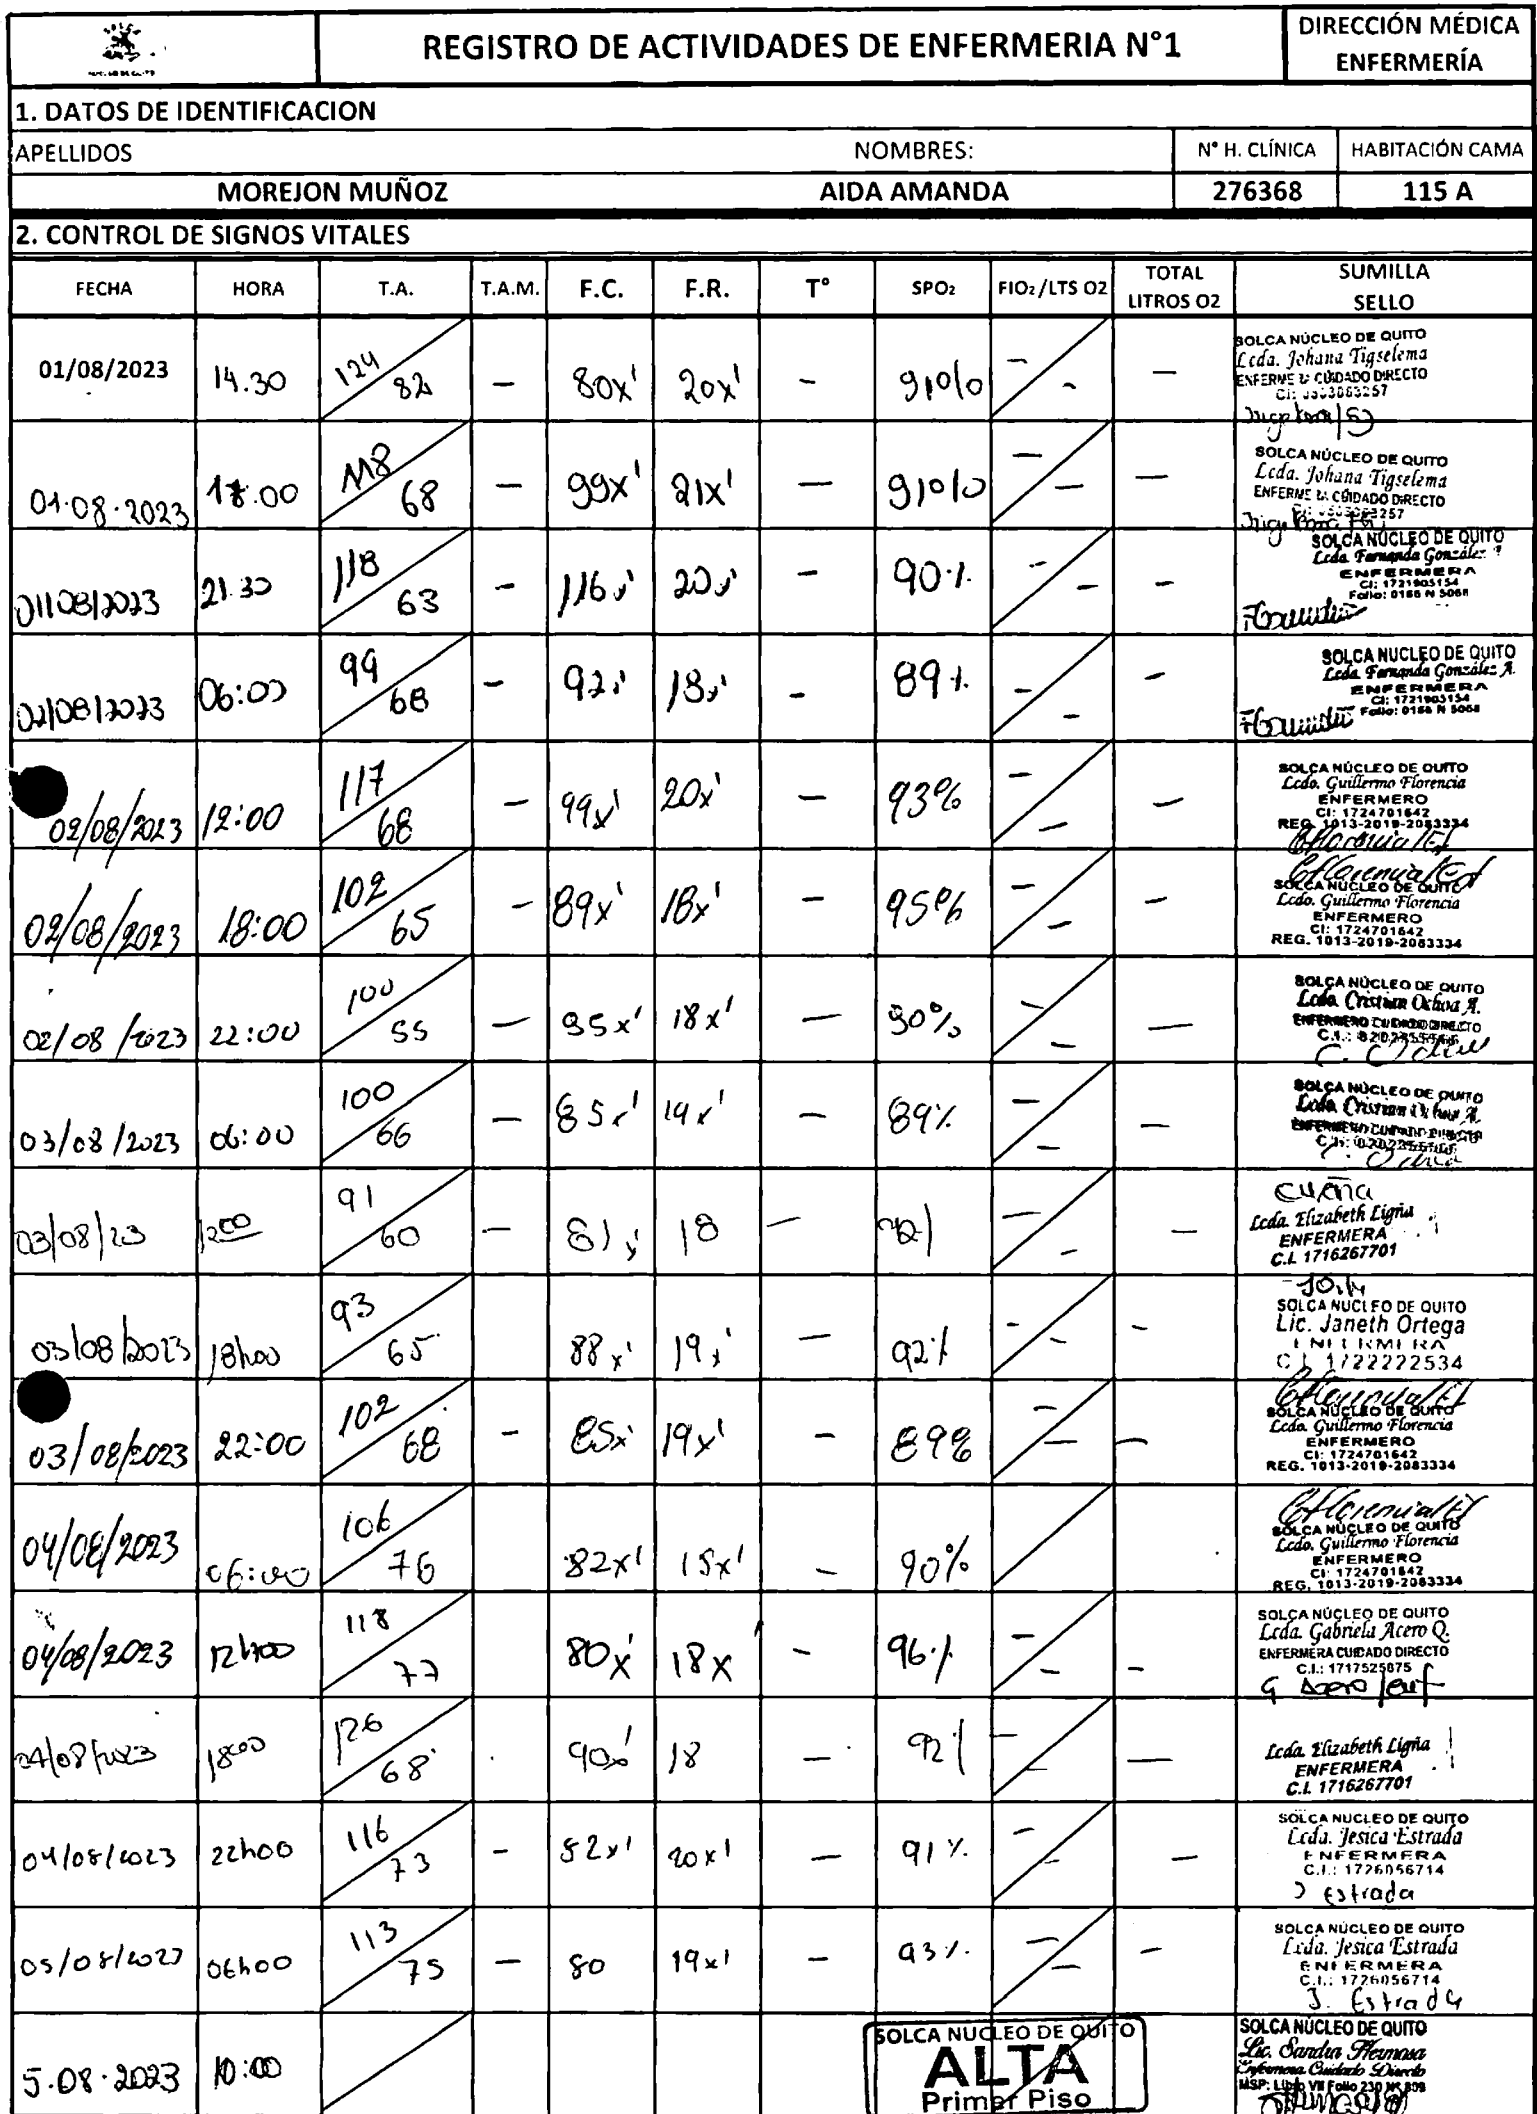 REGISTRO DE ACTIVIDADES DE ENFERMERIA N°1
DIRECCIÓN MÉDICA
ENFERMERÍA
1. DATOS DE IDENTIFICACION
APELLIDOS NOMBRES: N° H. CLÍNICA HABITACIÓN CAMA
MOREJON MUÑOZ AIDA AMANDA 276368 115 A
2. CONTROL DE SIGNOS VITALES
FECHA HORA T.A. T.A.M. F.C. F.R. T° SPO2 FIO2/LTS O2 TOTAL LITROS O2 SUMILLA SELLO
01/08/2023 14.30 124/82 – 80x' 20x' – 91% – – –
SOLCA NÚCLEO DE QUITO
Lcda. Johana Tigselema
CUIDADO DIRECTO
01.08.2023 18.00 118/68 – 99x' 21x' – 91% – – –
SOLCA NÚCLEO DE QUITO
Lcda. Johana Tigselema
CUIDADO DIRECTO
01/08/2023 21.30 118/63 – 116x' 20x' – 90% – – –
SOLCA NÚCLEO DE QUITO
Lcda. Fernanda González
ENFERMERA
CI: 1721905154
Folio: 0166 N 5068
02/08/2023 06:00 99/68 – 92x' 18x' – 89% – – –
SOLCA NUCLEO DE QUITO
Lcda. Fernanda González A.
ENFERMERA
CI: 1721905154
Folio: 0166 N 5068
02/08/2023 12:00 117/68 – 99x' 20x' – 93% – – –
SOLCA NÚCLEO DE QUITO
Lcdo. Guillermo Florencia
ENFERMERO
CI: 1724701642
REG. 1013-2019-2083334
02/08/2023 18:00 102/65 – 89x' 18x' – 95% – – –
SOLCA NÚCLEO DE QUITO
Lcdo. Guillermo Florencia
ENFERMERO
CI: 1724701642
REG. 1013-2019-2083334
02/08/2023 22:00 100/55 – 95x' 18x' – 90% – – –
SOLCA NÚCLEO DE QUITO
Lcdo. Cristian Ochoa A.
ENFERMERO CUIDADO DIRECTO
03/08/2023 06:00 100/66 – 85x' 19x' – 89% – – –
SOLCA NÚCLEO DE QUITO
Lcdo. Cristian Ochoa A.
ENFERMERO CUIDADO DIRECTO
03/08/23 12:00 91/60 – 81x' 18 – – – –
Lcda. Elizabeth Ligña
ENFERMERA
C.I. 1716267701
03/08/2023 18h00 93/65 88x' 19x' – 92% – – –
SOLCA NUCLEO DE QUITO
Lic. Janeth Ortega
ENFERMERA
C.I. 1722222534
03/08/2023 22:00 102/68 – 85x' 19x' – 89% – – –
SOLCA NÚCLEO DE QUITO
Lcdo. Guillermo Florencia
ENFERMERO
CI: 1724701642
REG. 1013-2019-2083334
04/08/2023 06:00 106/76 82x' 15x' – 90%
SOLCA NÚCLEO DE QUITO
Lcdo. Guillermo Florencia
ENFERMERO
CI: 1724701642
REG. 1013-2019-2083334
04/08/2023 12h00 118/77 80x' 18x – 96% – – –
SOLCA NÚCLEO DE QUITO
Lcda. Gabriela Acero Q.
ENFERMERA CUIDADO DIRECTO
C.I.: 1717525075
G Acero
04/08/2023 18:00 126/68 90x' 18 – 92% – – –
Lcda. Elizabeth Ligña
ENFERMERA
C.I. 1716267701
04/08/2023 22h00 116/73 – 82x' 20x' – 91% – – –
SOLCA NUCLEO DE QUITO
Lcda. Jesica Estrada
ENFERMERA
C.I.: 1726056714
J Estrada
05/08/2023 06h00 113/75 – 80 19x' – 93% – – –
SOLCA NÚCLEO DE QUITO
Lcda. Jesica Estrada
ENFERMERA
C.I.: 1726056714
J. Estrada
5.08.2023 10:00
SOLCA NUCLEO DE QUITO
ALTA
Primer Piso
SOLCA NÚCLEO DE QUITO
Lic. Sandra Hermosa
Enfermera Cuidado Directo
MSP: Libro VII Folio 230